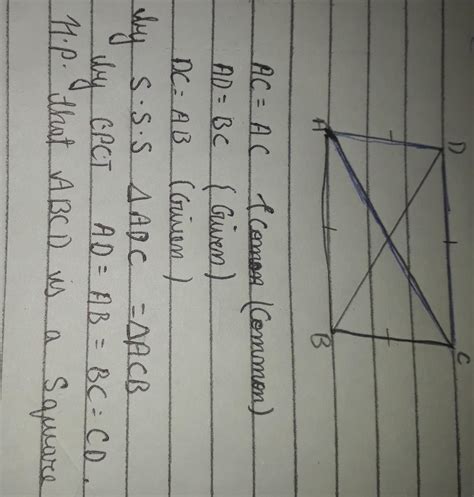 D
C
A
B
AC = AC (Common (Common)
AD = BC (Given)
DC = AB (Given)
by S.S.S ΔADC = ΔACB
by CPCT AD = AB = BC = CD.
H.P. that ABCD is a Square